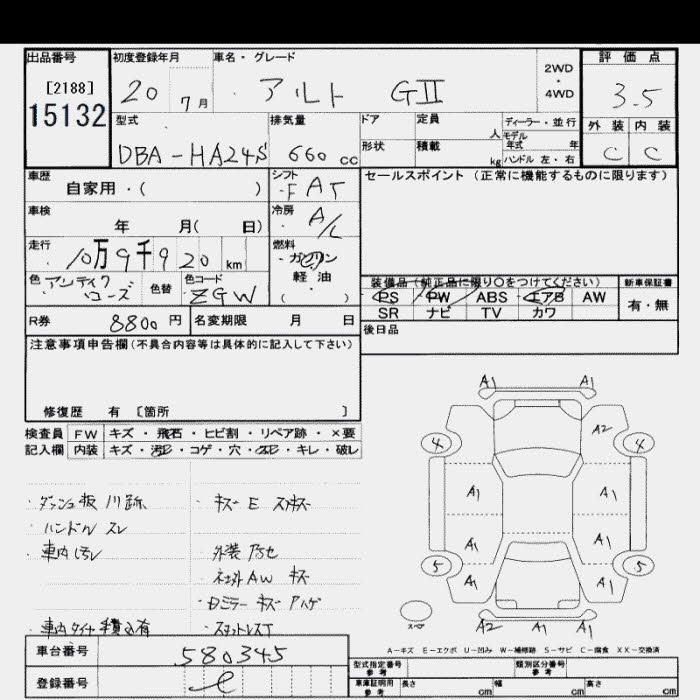 出品番号 初度登録年月 車名・グレード 2WD・4WD 評価点
[2188]
15132
20 7月 アルト GⅡ 3.5
型式 排気量 ドア 定員 人 ディーラー・並行 外装 内装
モデル年式 年
DBA-HA24S 660 cc 形状 積載 kg ハンドル 左・右 C C
車歴 自家用・( ) シフト FAT セールスポイント (正常に機能するものに限ります)
車検 年 月( 日) 冷房 A/C
走行 10万9千920km 燃料 ガソリン・軽油 ( )
色 アンティクローズ 色替 色コード ZGW
装備品(純正品に限り○をつけてください) 新車保証書
PS PW ABS エアB AW 有・無
SR ナビ TV カワ
R券 8800円 名変期限 月 日 後日品
注意事項申告欄(不具合内容等は具体的に記入して下さい)
修復歴 有 [箇所 ]
検査員 FW キズ・飛石・ヒビ割・リペア跡・×要
記入欄 内装 キズ・汚レ・コゲ・穴・スレ・キレ・破レ
A1 A1
A2
4 4
A1 A1
A1 A1
5 5
A1 A1
A2 A1 A1
スペア
・ハンドル スレ
・キズ E
・車内 汚レ
・外装
AW キズ
・ドミラー キズ ハゲ
・車内 タイヤ 積込有
A-キズ E-エクボ U-凹み W-補修跡 S-サビ C-腐食 XX-交換済
車台番号 580345
登録番号
型式指定番号 参考 類別区分番号 参考
車庫証明用 参考 長さ cm 幅 cm 高さ cm